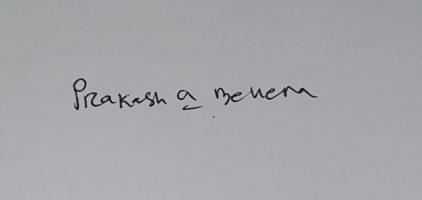 Prakash a Behera